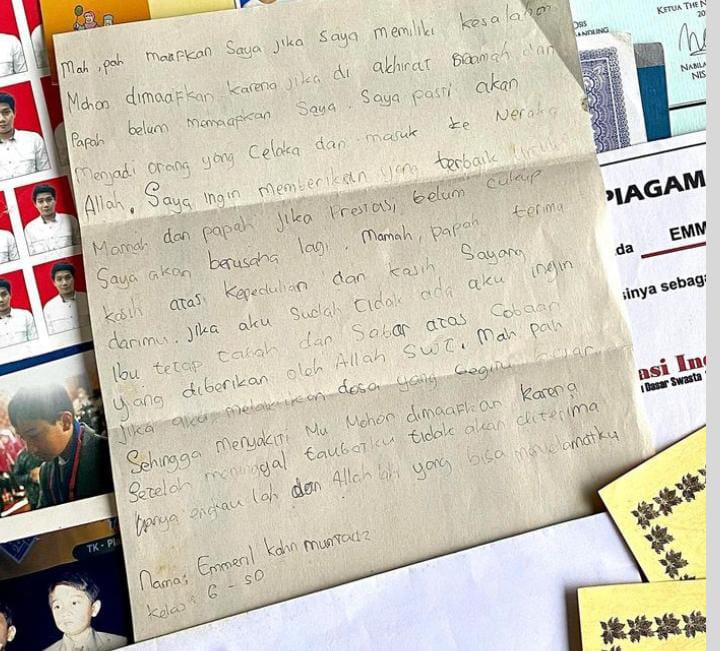 Mah, pah maafkan Saya jika saya memiliki kesalahan
Mohon dimaafkan karena jika di akhirat mamah dan
Papah belum memaafkan Saya. Saya pasti akan
Menjadi orang yang Celaka dan masuk ke Neraka
Allah. Saya ingin memberikan yang terbaik untuk
Mamah dan papah jika Prestasi belum cukup
Saya akan berusaha lagi. Mamah, papah terima
kasih atas kepedulian dan kasih Sayang
darimu. jika aku sudah tidak ada aku ingin
Ibu tetap tabah dan Sabar atas Cobaan
yang diberikan oleh Allah SWT. Mah pah
Jika aku melakukan dosa yang begitu
Sehingga Menyakiti Mu Mohon dimaafkan karena
Setelah meninggal taubatku tidak akan diterima
hanya engkau lah dan Allah lah yang bisa menyelamatku
Nama: Emmeril kahn mumtadz
kelas: 6 - SD
KETUA
NIS
PIAGAM
da EMM
inya sebaga
asi In
Dasar Swasta
TK - P